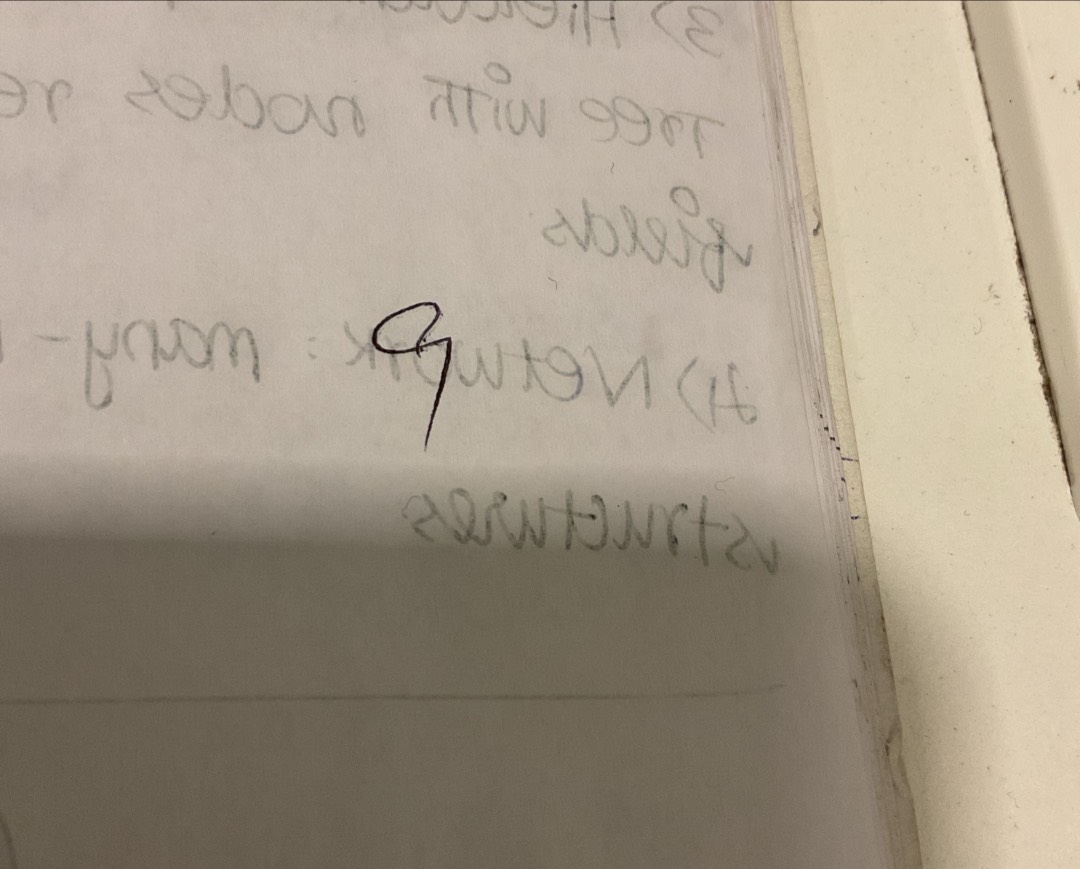 3) Hierarchical
Tree with nodes re
fields
9
4) Network: many-
structures